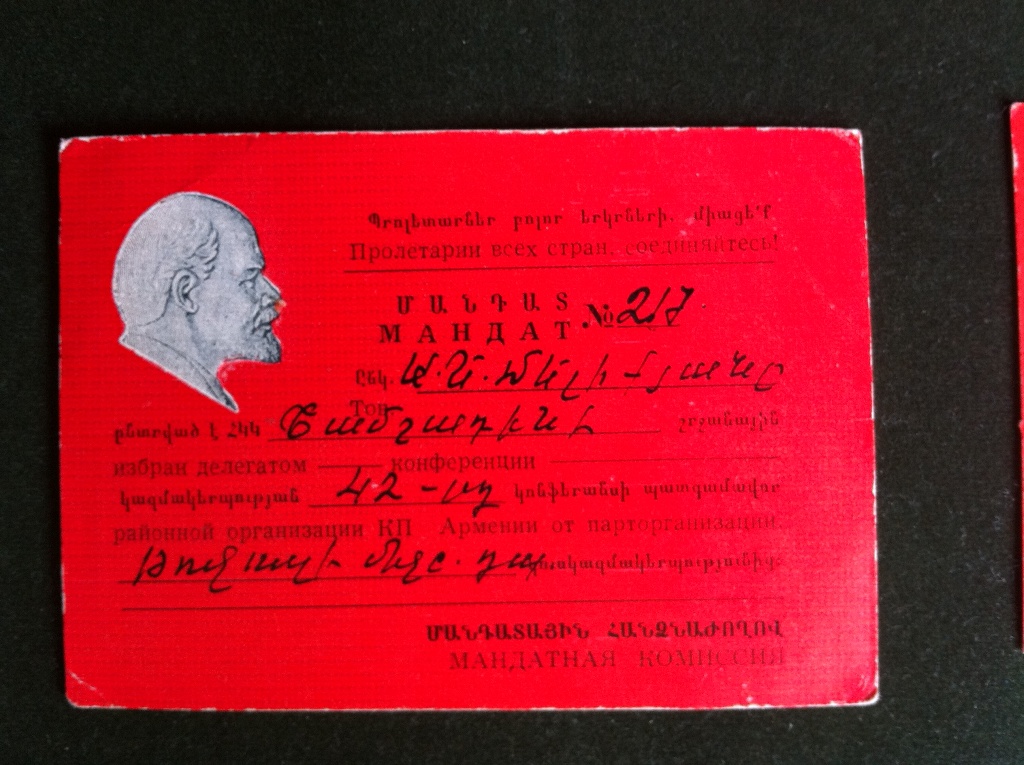 Պրոլետարներ բոլոր երկրների, միացե՛ք
Пролетарии всех стран, соединяйтесь!
ՄԱՆԴԱՏ
МАНДАТ № 217
Ընկ. Ա. Ն. Մելիքյանը
Тов.
ընտրված է ՀԿԿ Շամշադինի շրջանային
избран делегатом конференции
կազմակերպության 42-րդ կոնֆերանսի պատգամավոր
районной организации КП Армении от парторганизации
կազմակերպությունից:
ՄԱՆԴԱՏԱՅԻՆ ՀԱՆՁՆԱԺՈՂՈՎ
МАНДАТНАЯ КОМИССИЯ